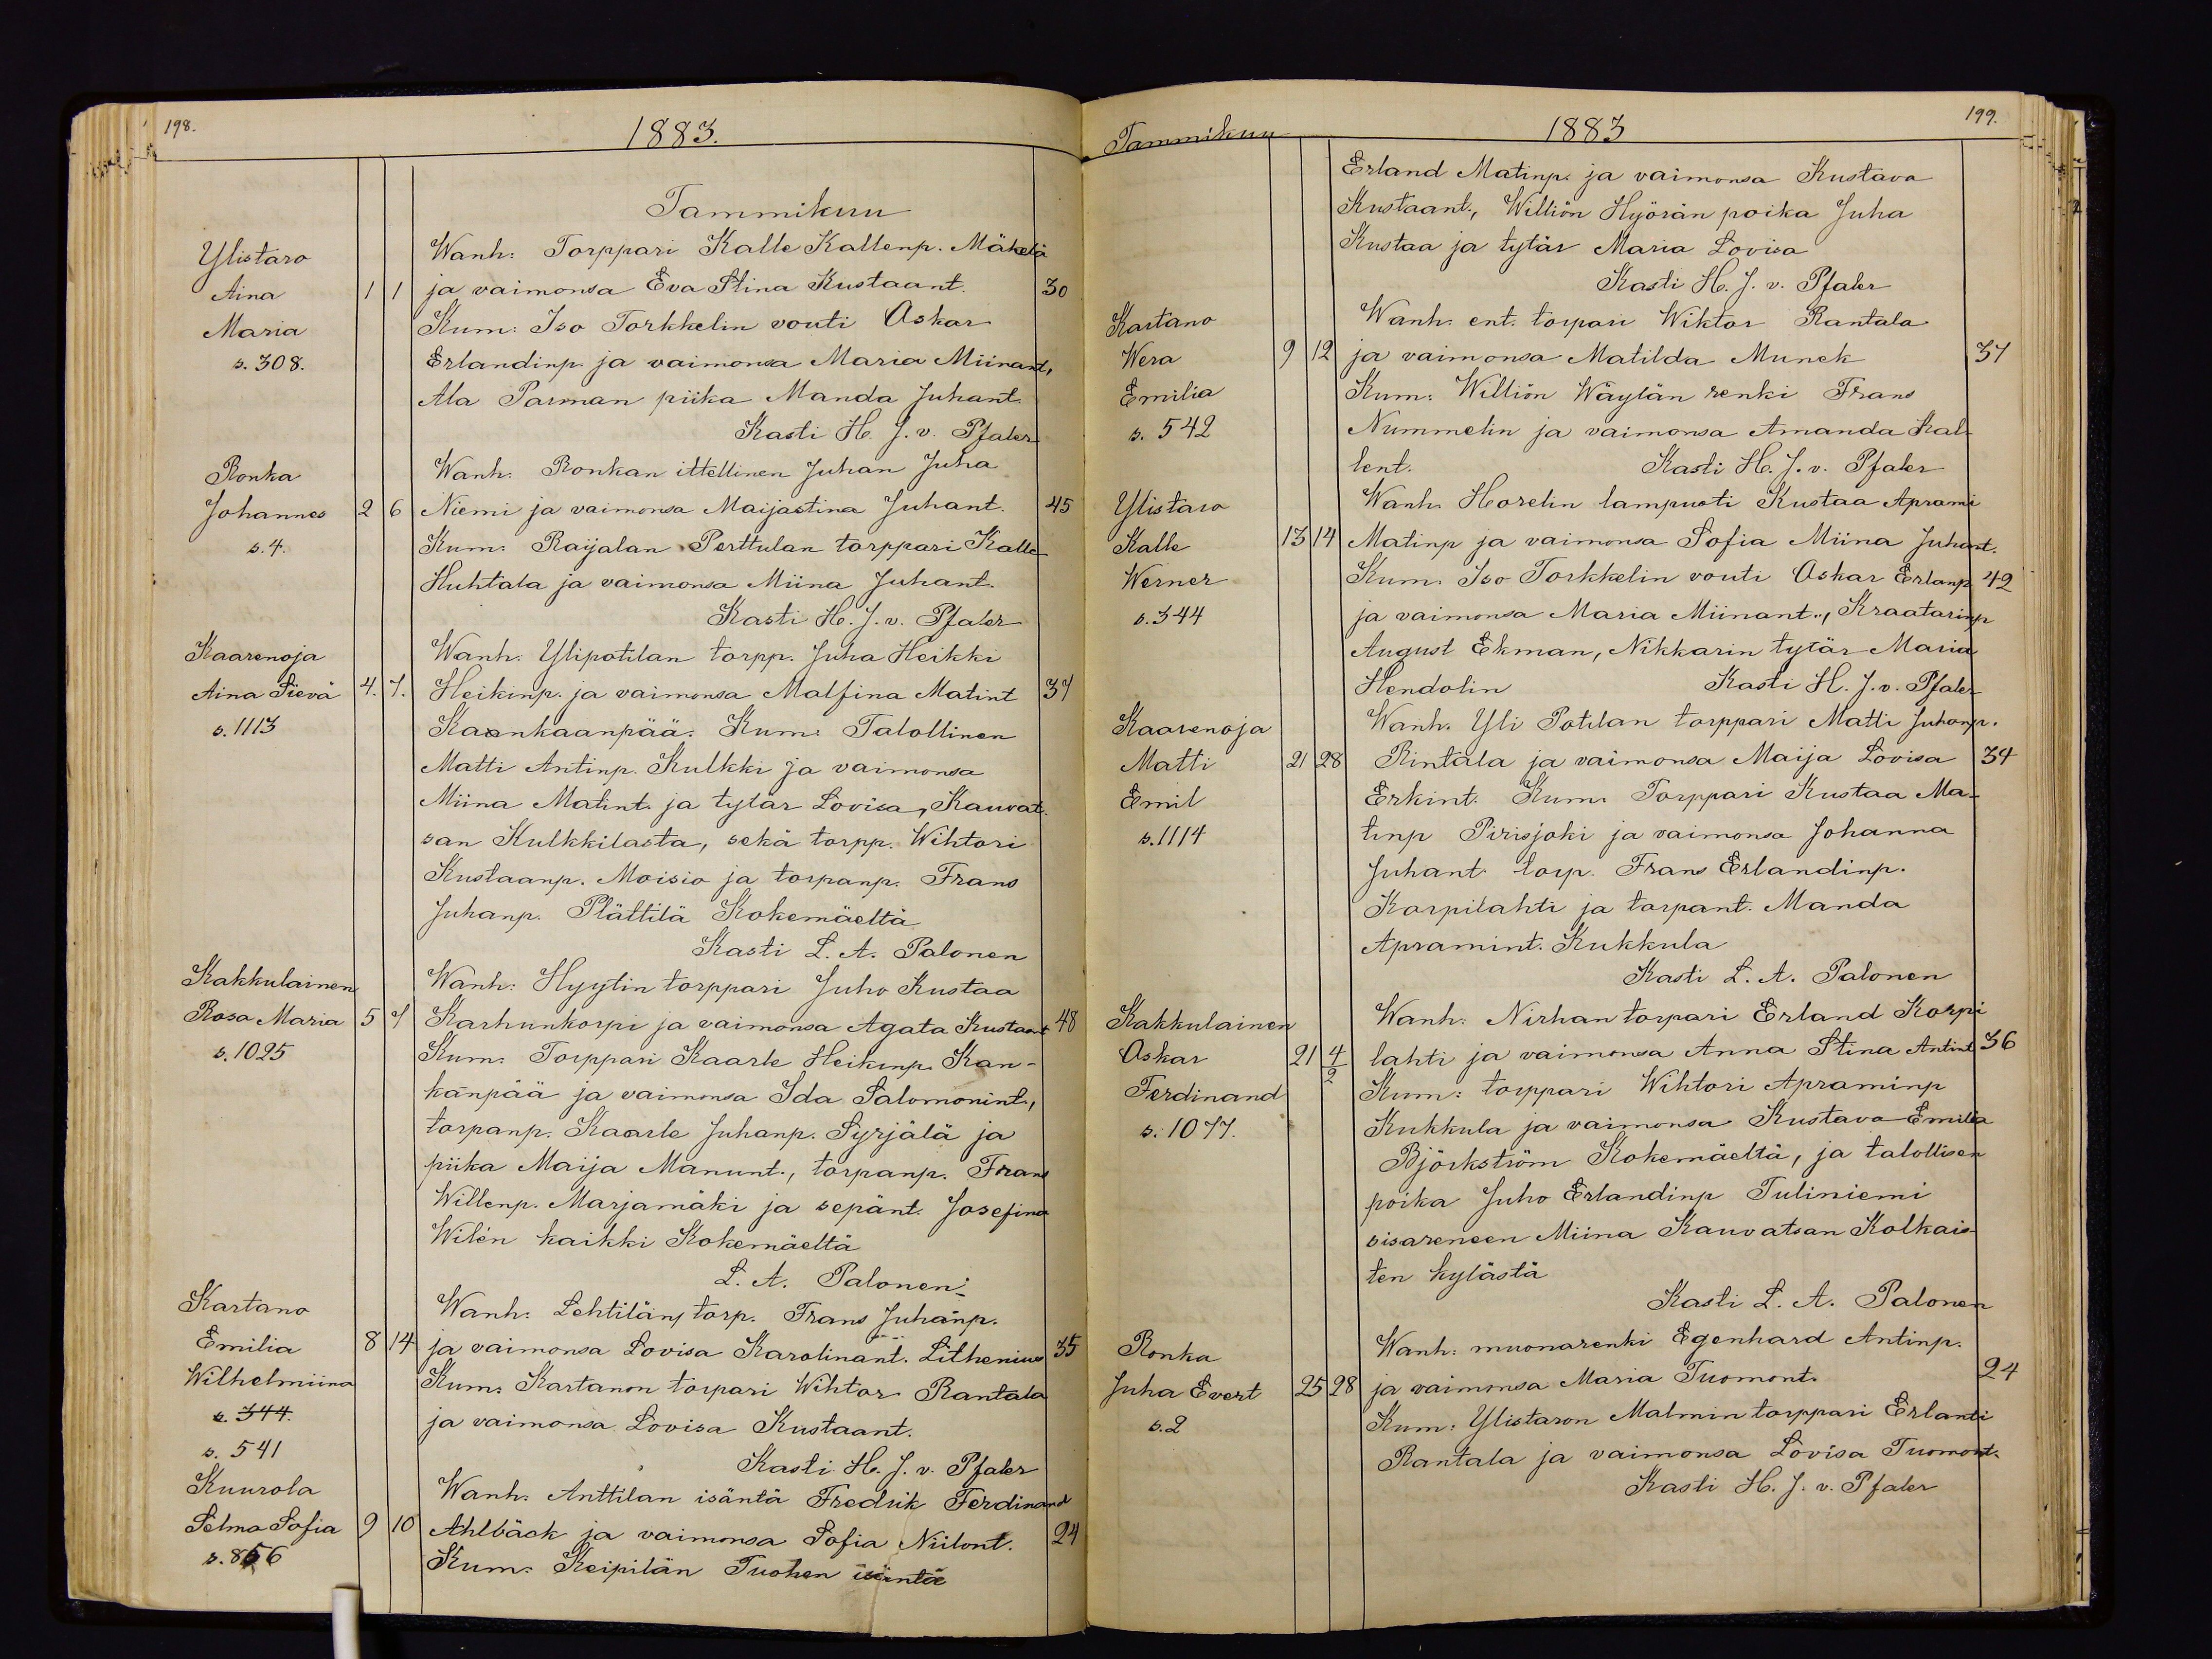 198.
1883.
Tammikuu
Ylistaro Wanh: Torppari Kalle Kallenp. Mäkelä
Aina 1 1 ja vaimonsa Eva Stina Kustaant. 30
Maria Kum: Iso Torkkelin vouti Oskar
s. 308. Erlandinp. ja vaimonsa Maria Miinant,
Ala Parman piika Manda Juhant.
Kasti H. J. v. Pfaler
Ronka Wanh: Ronkan ittellinen Juhan Juha
Johannes 2 6 Niemi ja vaimonsa Maijastina Juhant. 45
s. 4. Kum: Raijalan Perttulan torppari Kalle
Huhtala ja vaimonsa Miina Juhant.
Kasti H. J. v. Pfaler
Kaarenoja Wanh. Ylipotilan torpp. Juha Heikki
Aina Sievä 4. 7. Heikinp. ja vaimonsa Malfina Matint 37
s. 1113 Kaankaanpää. Kum: Talollinen
Matti Antinp. Kulkki ja vaimonsa
Miina Matint. ja tytär Lovisa, Kauvat.
san Kulkkilasta, sekä torpp. Wihtori
Kustaanp. Moisio ja torpanp. Frans
Juhanp. Plättilä Kokemäeltä
Kasti L. A. Palonen
Kakkulainen Wanh: Hyytin torppari Juho Kustaa
Rosa Maria 5 7 Karhunkorpi ja vaimonsa Agata Kustaant 48
s. 1025 Kum: Torppari Kaarle Heikinp. Kan-
kanpää ja vaimonsa Ida Salomonint.,
torpanp. Kaarle Juhanp. Syrjälä ja
piika Maija Manunt., torpanp. Frans
Willenp. Marjamäki ja sepänt. Josefina
Wilén kaikki Kokemäeltä
L. A. Palonen
Kartano Wanh: Lehtilän torp. Frans Juhanp.
Emilia 8 14 ja vaimonsa Lovisa Karolinant. Lithenius 35
Wilhelmiina Kum: Kartanon torpari Wihtor Rantala
s. 344. ja vaimonsa Lovisa Kustaant.
s. 541 Kasti H. J. v. Pfaler
Kuurola Wanh: Anttilan isäntä Fredrik Ferdinand
Selma Sofia 9 10 Ahlbäck ja vaimonsa Sofia Niilont. 24
s. 856 Kum: Keipilän Tuohen isäntä
Tammikuu 1883 199.
Erland Matinp. ja vaimonsa Kustava
Kustaant., Williön Hyörän poika Juha
Kustaa ja tytär Maria Lovisa
Kasti H. J. v. Pfaler
Kartano Wanh. ent. torpari Wiktor Rantala
Wera 9 12 ja vaimonsa Matilda Munck 37
Emilia Kum: Williön Wäylän renki Frans
s. 542 Nummelin ja vaimonsa Amanda Kal-
lent. Kasti H. J. v. Pfaler
Ylistaro Wanh. Horelin lampuoti Kustaa Aprami
Kalle 13 14 Matinp ja vaimonsa Sofia Miina Juhant.
Werner Kum: Iso Torkkelin vouti Oskar Erlanp 42
s. 344 ja vaimonsa Maria Miinant., Kraatarinp
August Ekman, Nikkarin tytär Maria
Hendolin Kasti H. J. v. Pfaler
Kaarenoja Wanh. Yli Potilan torppari Matti Juhanp.
Matti 21 28 Rintala ja vaimonsa Maija Lovisa 34
Emil Erkint. Kum: Torppari Kustaa Ma-
s. 1114 tinp Pirisjoki ja vaimonsa Johanna
Juhant. torp. Frans Erlandinp.
Korpilahti ja torpant. Manda
Apramint. Kukkula
Kasti L. A. Palonen
Kakkulainen Wanh: Nirhan torpari Erland Korpi
Oskar 21 4/2 lahti ja vaimonsa Anna Stina Antint 36
Ferdinand Kum: torppari Wihtori Apraminp
s. 1077. Kukkula ja vaimonsa Kustava Emilia
Björkström Kokemäeltä, ja talollisen
poika Juho Erlandinp Tuliniemi
sisareneen Miina Kauvatsan Kolkais-
ten kylästä
Kasti L. A. Palonen
Ronka Wanh: muonarenki Egenhard Antinp.
Juha Evert 25 28 ja vaimonsa Maria Tuomont. 24
s. 2 Kum: Ylistaron Malmin torppari Erlanti
Rantala ja vaimonsa Lovisa Tuomont.
Kasti H. J. v. Pfaler